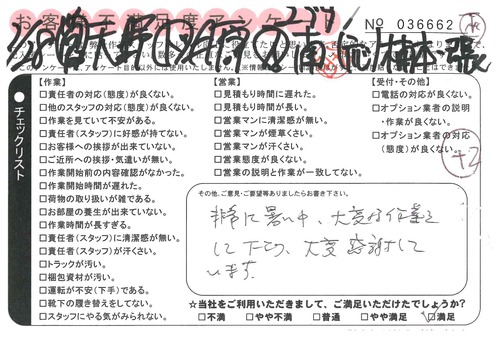 お客様満足度アンケート
No 036662
チェックリスト
【作業】
□責任者の対応(態度)が良くない。
□他のスタッフの対応(態度)が良くない。
□作業を見ていて不安がある。
□責任者(スタッフ)に好感が持てない。
□お客様への挨拶が出来ていない。
□ご近所への挨拶・気遣いが無い。
□作業開始前の内容確認がなかった。
□作業開始時間が遅れた。
□荷物の取り扱いが雑である。
□お部屋の養生が出来ていない。
□作業時間が長すぎる。
□責任者(スタッフ)に清潔感が無い。
□責任者(スタッフ)が汗くさい。
□トラックが汚い。
□梱包資材が汚い。
□運転が不安(下手)である。
□靴下の履き替えをしてない。
□スタッフにやる気がみられない。
【営業】
□見積もり時間に遅れた。
□見積もり時間が長い。
□営業マンに清潔感が無い。
□営業マンが煙草くさい。
□営業マンが汗くさい。
□営業態度が良くない。
□営業の説明と作業が一致してない。
【受付・その他】
□電話の対応が良くない。
□オプション業者の説明
・作業が良くない。
□オプション業者の対応
(態度)が良くない。
+2
その他、ご意見・ご要望等ありましたらお書き下さい。
非常に暑い中、大変な作業を
して下さり、大変感謝して
います。
☆当社をご利用いただきまして、ご満足いただけたでしょうか?
□不満 □やや不満 □普通 □やや満足 ☑満足